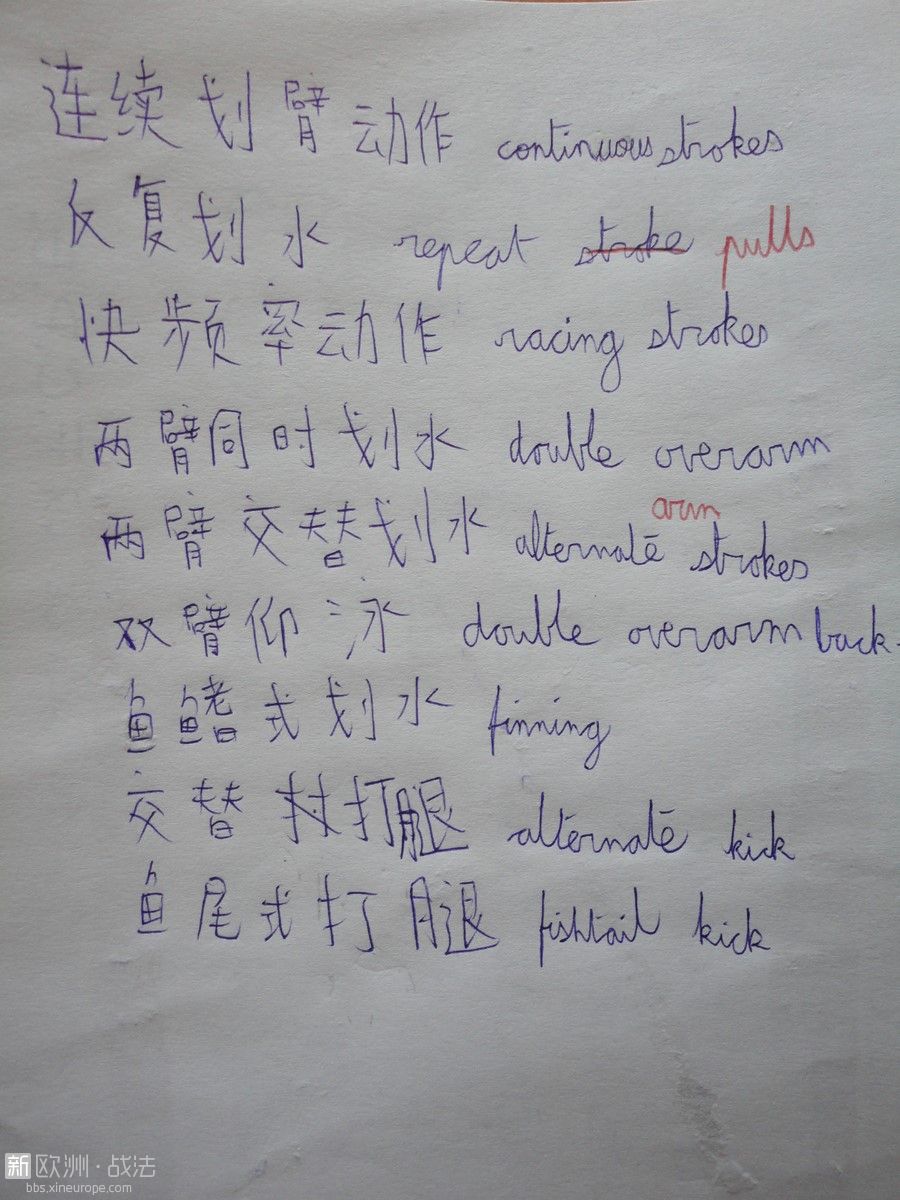 连续划臂动作 continuous strokes
反复划水 repeat stroke pulls
快频率动作 racing strokes
两臂同时划水 double overarm
两臂交替划水 alternate arm strokes
双臂仰泳 double overarm back.
鱼鳍式划水 finning
交替打腿 alternate kick
鱼尾式打腿 fishtail kick
新欧洲·战法
bbs.xineurope.com